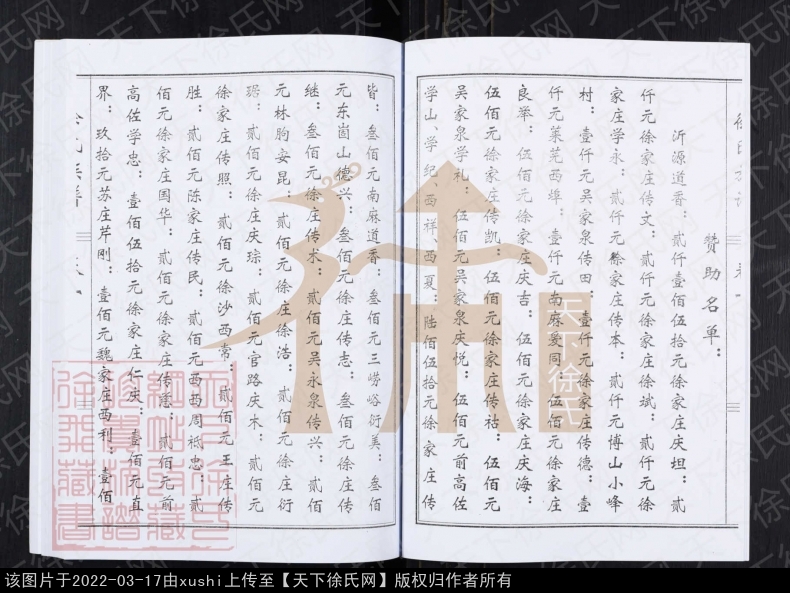 赞助名单：
沂源道香：贰仟壹佰伍拾元徐家庄庆坦：贰
仟元徐家庄传文：贰仟元徐家庄徐斌：贰仟元徐
家庄学永：贰仟元徐家庄传本：贰仟元博山小峰
村：壹仟元吴家泉传田：壹仟元徐家庄传德：壹
仟元莱芜西埠：壹仟元南麻爱同：伍佰元徐家庄
良举：伍佰元徐家庄庆吉：伍佰元徐家庄庆海：
伍佰元徐家庄传凯：伍佰元徐家庄传祜：伍佰元
吴家泉学礼：伍佰元吴家泉庆悦：伍佰元前高佐
学山、学纪、西祥、西夏：陆佰伍拾元徐家庄传
皆：叁佰元南麻道香：叁佰元三崂峪衍美：叁佰
元东崮山德兴：叁佰元徐庄传志：叁佰元徐庄传
继：叁佰元徐庄传术：贰佰元吴永泉传兴：贰佰
元林朐安昆：贰佰元徐庄徐浩：贰佰元徐庄衍
琚：贰佰元徐庄庆琮：贰佰元官路庆木：贰佰元
徐家庄传照：贰佰元徐沙西常：贰佰元王庄传
胜：贰佰元陈家庄传民：贰佰元西西周祗忠：贰
佰元徐家庄国华：贰佰元徐家庄传意：贰佰元前
高佐学忠：壹佰伍拾元徐家庄仁庆：壹佰元直
界：玖拾元苏庄芹刚：壹佰元魏家庄西利：壹佰
徐氏族谱
卷一
天下徐氏
该图片于2022-03-17由xushi上传至【天下徐氏网】版权归作者所有